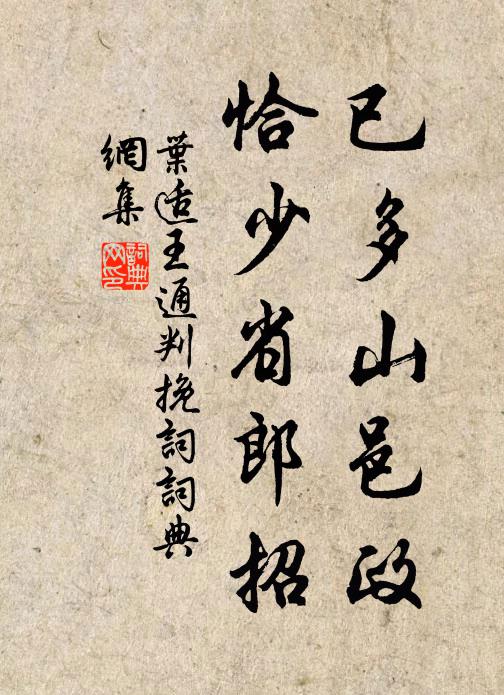 已多山邑政
恰少省郎招
葉适王通判挽詞詞典
網集
詞典網印